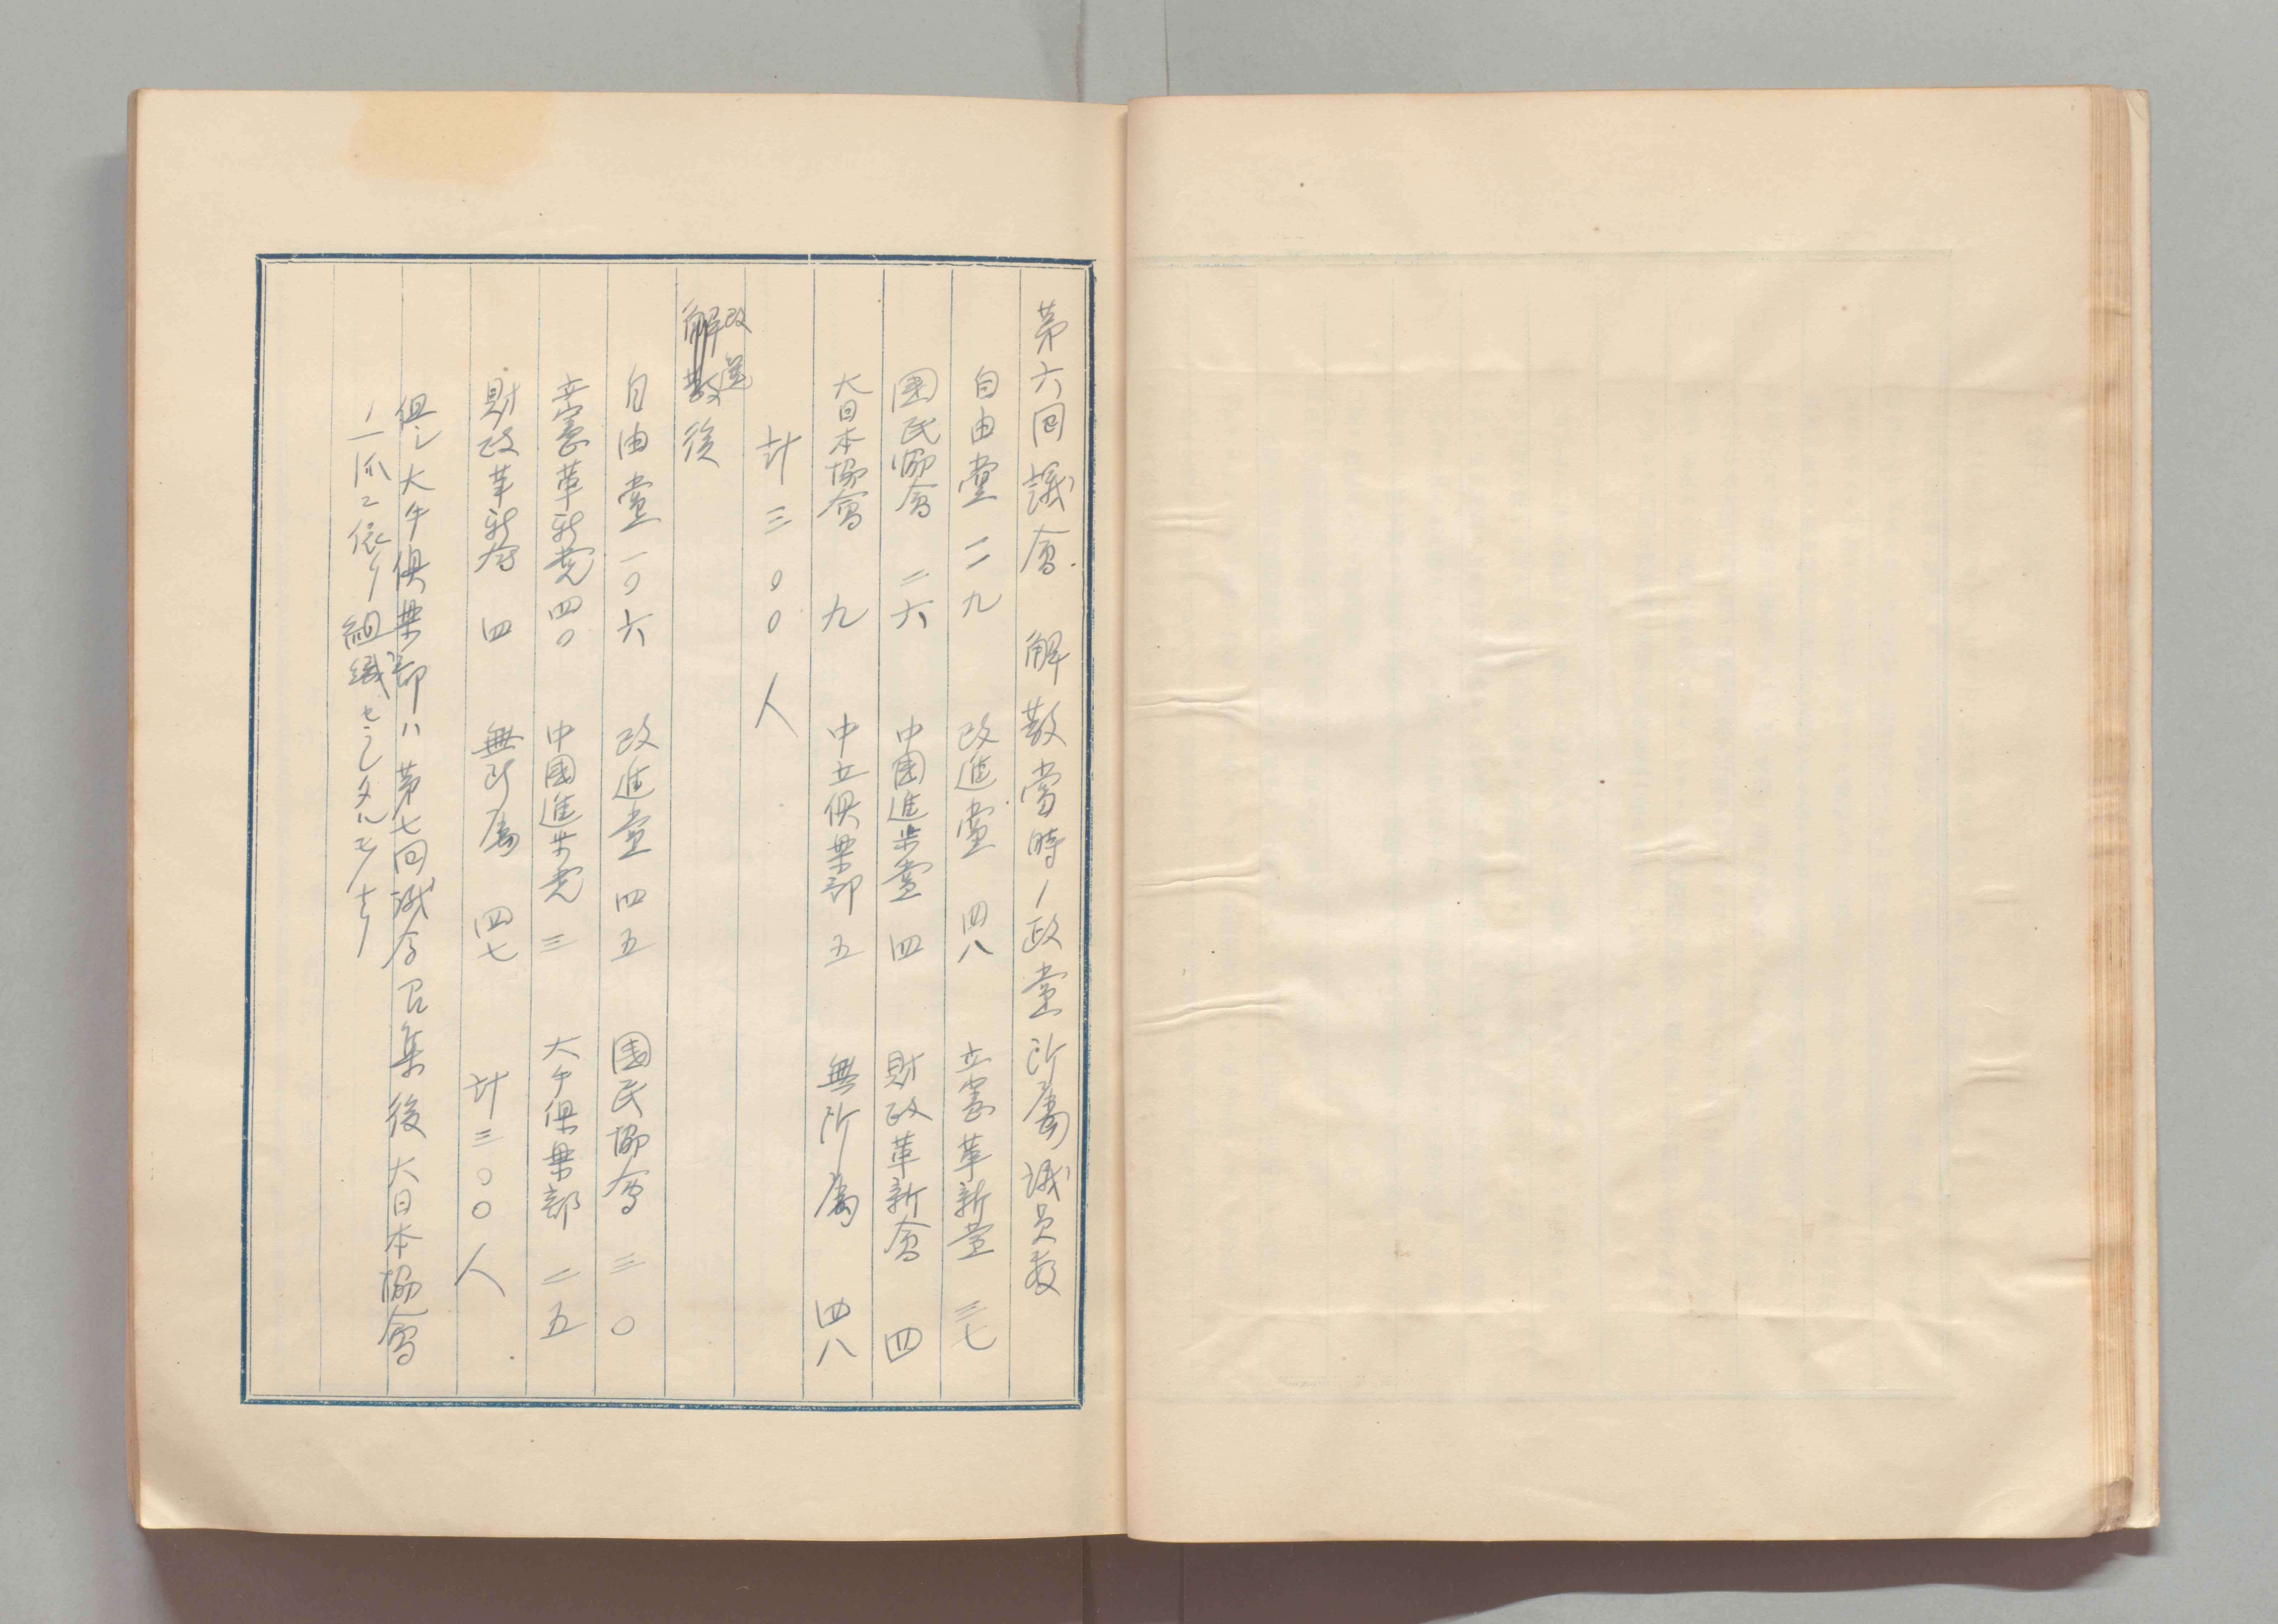 第六回議會 解散當時ノ政黨所屬議員数
自由黨 一一九 改進黨 四八 立憲革新黨 三七
國民協會 二六 中國進歩黨 四 財政革新會 四
大日本協會 九 中立倶楽部 五 無所属 四八
計三〇〇人
解散改選後
自由黨 一〇六 改進黨 四五 國民協會 三〇
立憲革新党 四〇 中國進歩党 三 大手倶楽部 二五
財政革新会 四 無所属 四七 計三〇〇人
但シ大手倶楽部ハ第七回議会召集後大日本協會
ノ一派ニ依リ組織セラレタルモノナリ